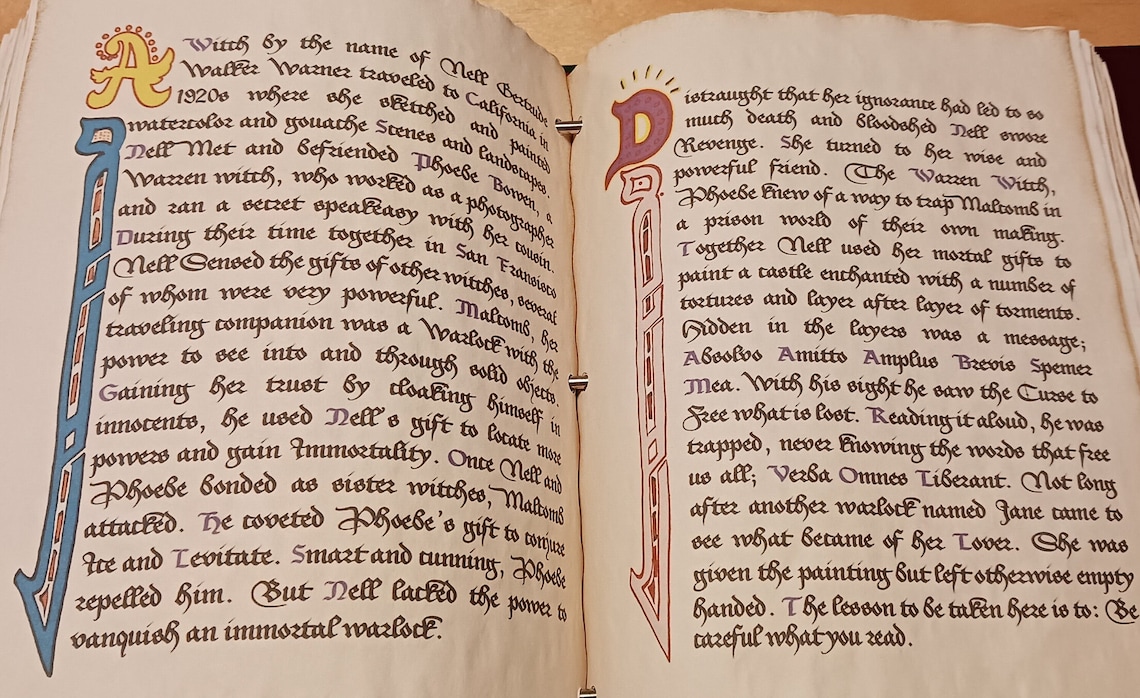 A Witch by the name of Nell Gertrude
Walker Warner traveled to California in
1920s where she sketched and painted
watercolor and gouache Scenes and landscapes.
Nell Met and befriended Phoebe Bowen, a
Warren witch, who worked as a photographer
and ran a secret speakeasy with her cousin.
During their time together in San Fransisco
Nell Sensed the gifts of other witches, several
of whom were very powerful. Malcomb, her
traveling companion was a Warlock with the
power to see into and through solid objects.
Gaining her trust by cloaking himself in
innocents, he used Nell's gift to locate more
powers and gain Immortality. Once Nell and
Phoebe bonded as sister witches, Malcomb
attacked. He coveted Phoebe's gift to conjure
Ice and Levitate. Smart and cunning, Phoebe
repelled him. But Nell lacked the power to
vanquish an immortal warlock.
Distraught that her ignorance had led to so
much death and bloodshed Nell swore
Revenge. She turned to her wise and
powerful friend. The Warren Witch,
Phoebe knew of a way to trap Maltomb in
a prison world of their own making.
Together Nell used her mortal gifts to
paint a castle enchanted with a number of
tortures and layer after layer of torments.
Hidden in the layers was a message;
Absolvo Amitto Amplus Brevis Spemer
Mea. With his sight he saw the Curse to
Free what is lost. Reading it aloud, he was
trapped, never knowing the words that free
us all; Verba Omnes Liberant. Not long
after another warlock named Jane came to
see what became of her Lover. She was
given the painting but left otherwise empty
handed. The lesson to be taken here is to: Be
careful what you read.